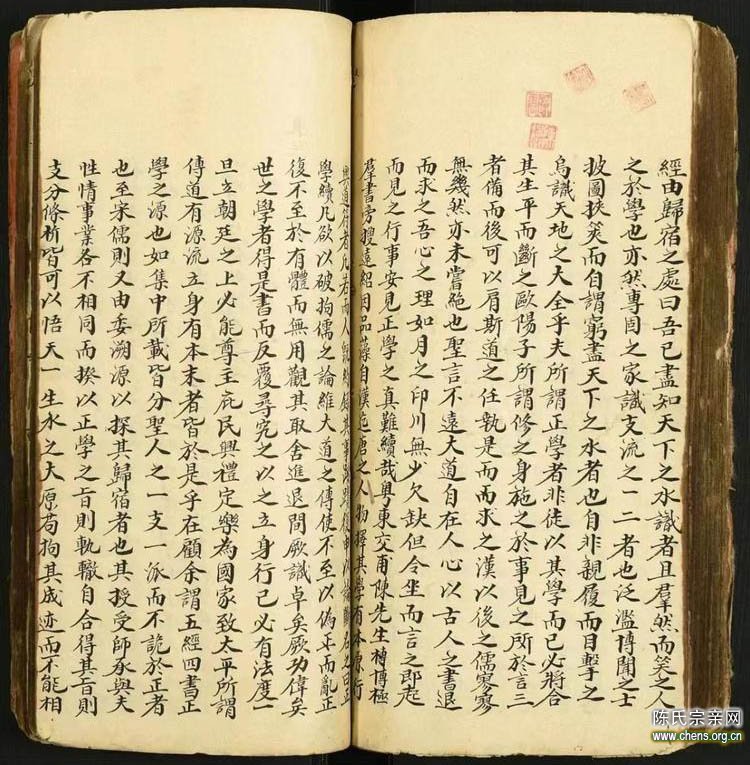 經由歸宿之處曰吾已盡知天下之水識者且羣然而笑之人
之於學也亦然專固之家識支流之一二者也泛濫博聞之士
披圖挾筴而自謂窮盡天下之水者也自非親履而目擊之
烏識天地之大全乎夫所謂正學者非徒以其學而已必將合
其生平而斷之歐陽子所謂修之身施之於事見之所於言三
者備而後可以肩斯道之任執是而而求之漢以後之儒寥寥
無幾然亦未嘗絶也聖言不遠大道自在人心以古人之書退
而求之吾心之理如月之印川無少欠缺但今坐而言之即起
而見之行事安見正學之真難續哉粤東交甫陳先生博極
羣書旁搜遠紹因品藻自漢迄唐之人物擇其學有本原行
與道符者凡若而人
學續凡欲以破拘儒之論維大道之傳使不至以偽乎而亂正
復不至於有體而無用觀其取舍進退間厥識卓矣厥功偉矣
世之學者得是書而反覆尋究之以之立身行己必有法度一
旦立朝廷之上必能尊主庇民興禮定樂為國家致太平所謂
傳道有源流立身有本末者皆於是乎在顧余謂五經四書正
學之源也如集中所載皆分聖人之一支一派而不詭於正者
也至宋儒則又由委溯源以探其歸宿者也其授受師承與夫
性情事業各不相同而揆以正學之旨則軌轍自合得其旨則
支分條析皆可以悟天一生水之大原苟拘其成迹而不能相
陈氏宗亲网
www.chens.org.cn